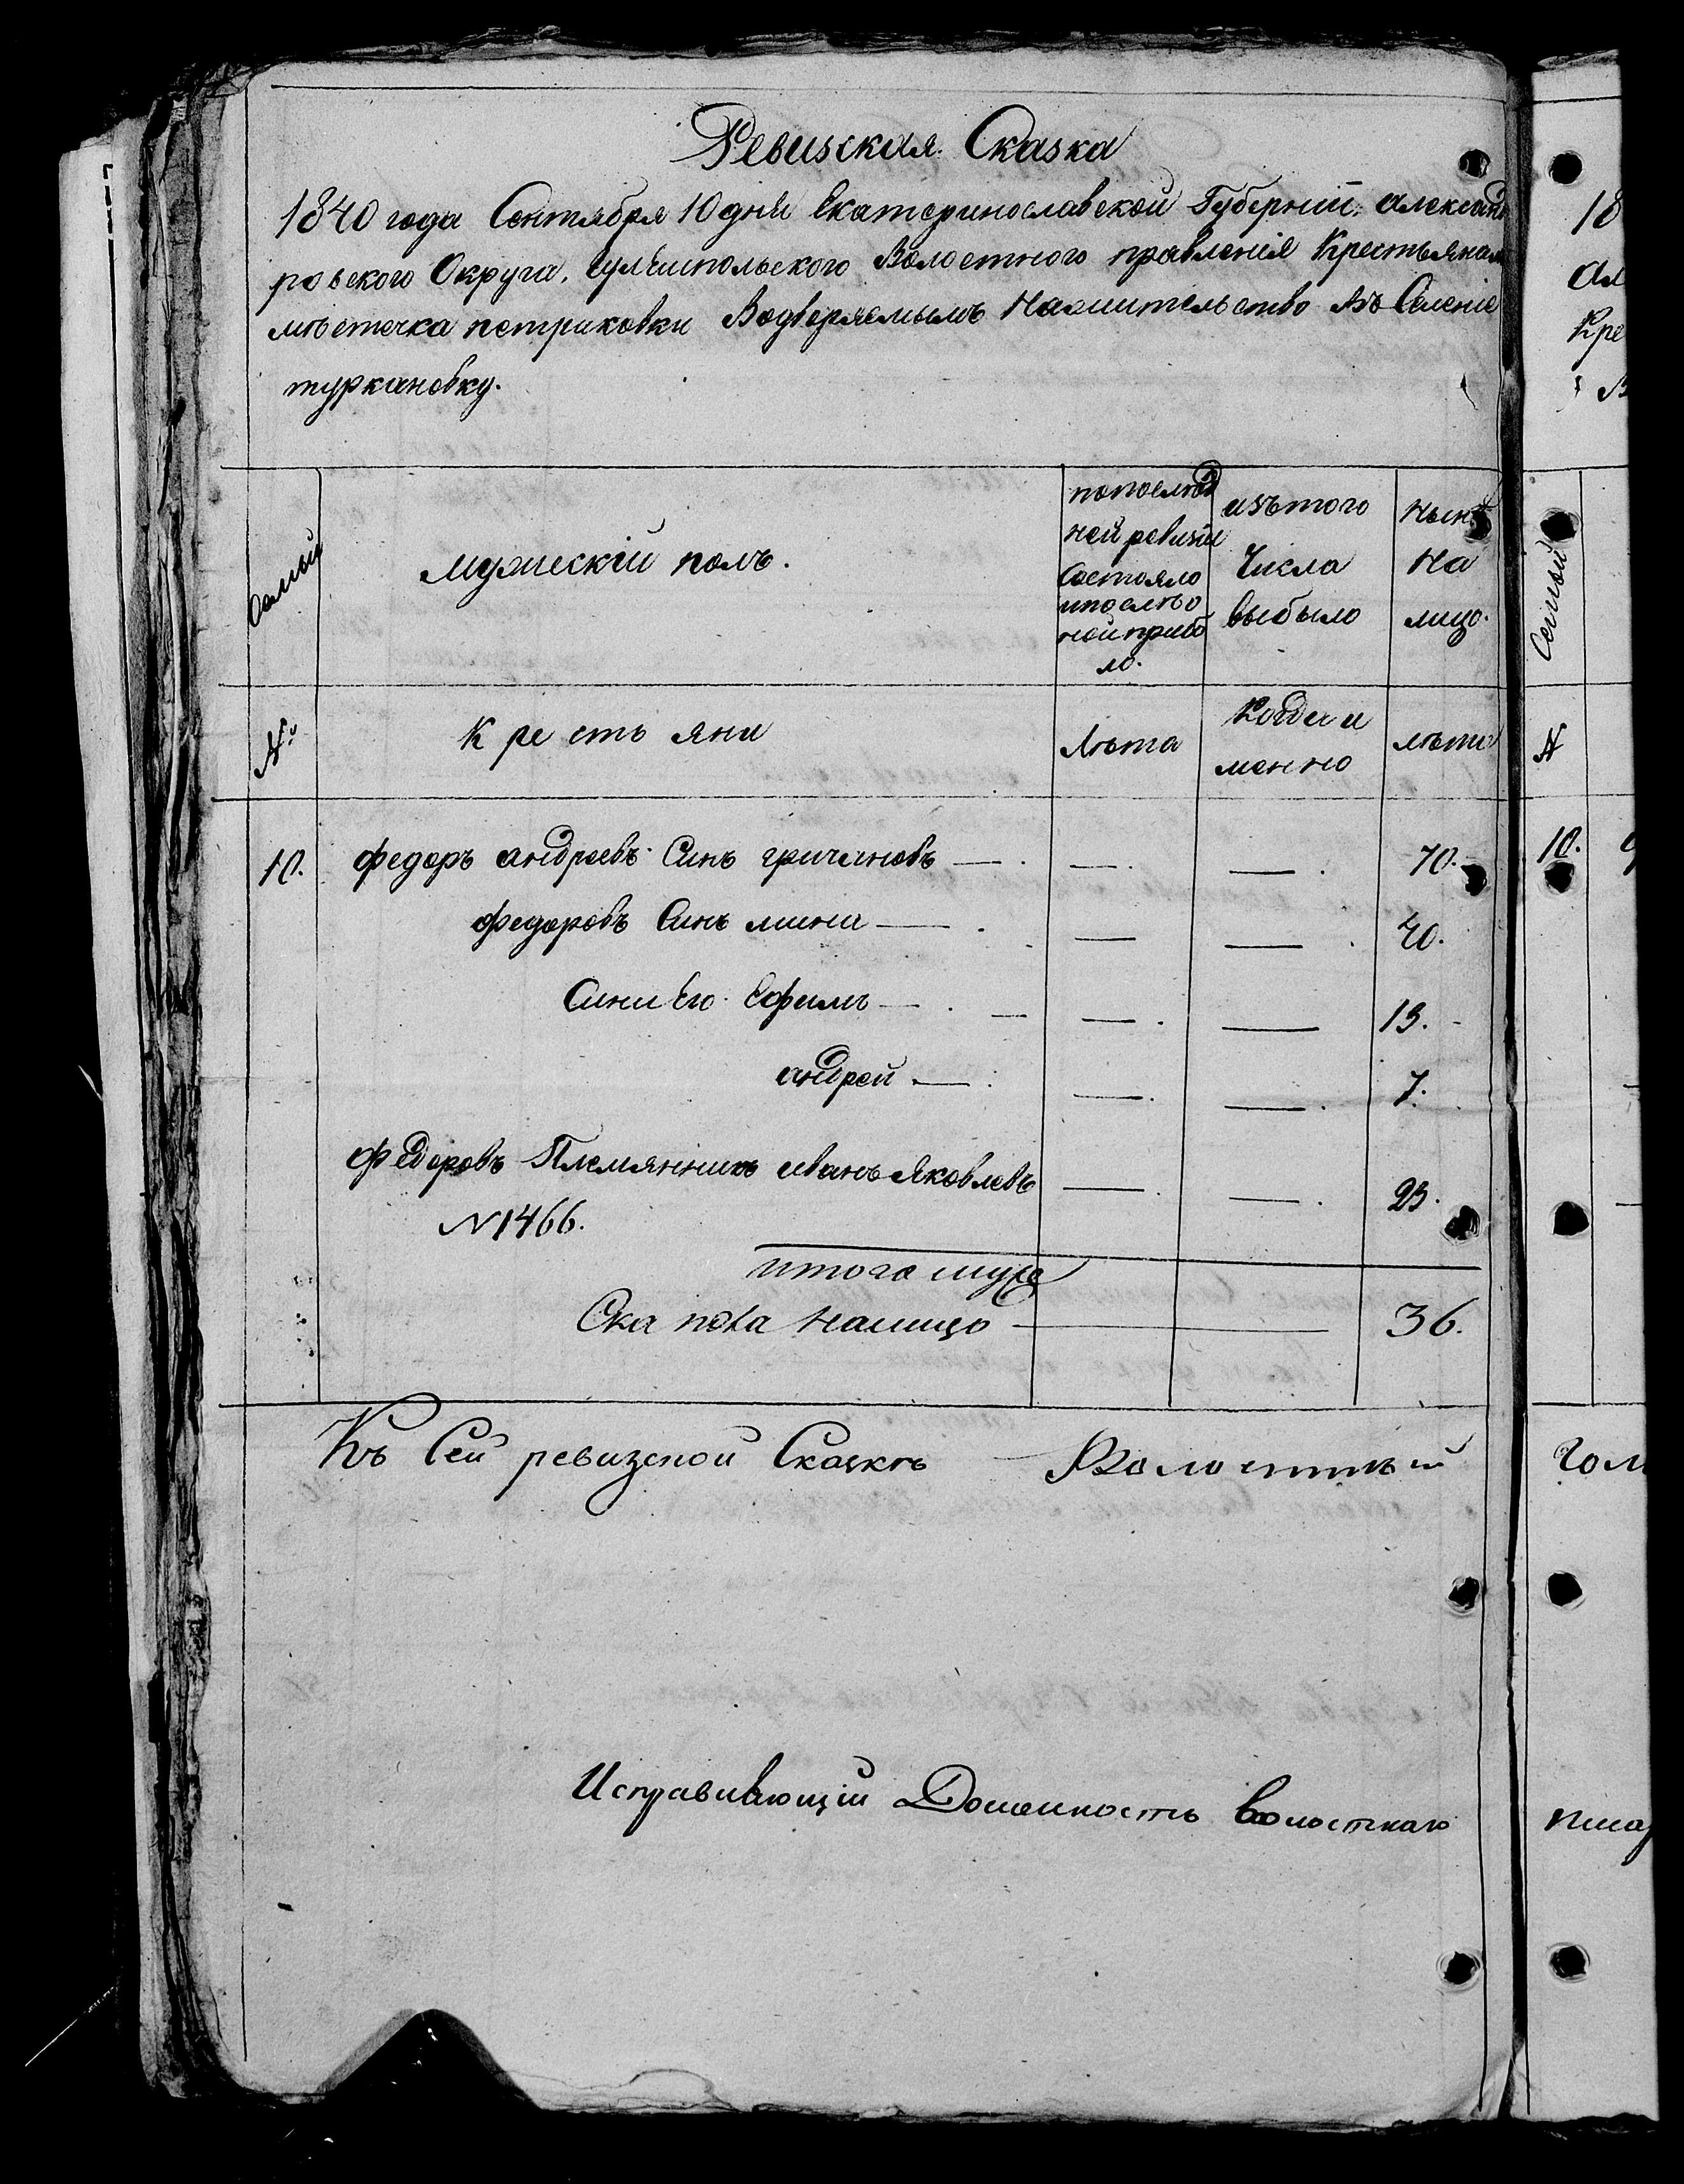 Ревизская Сказка
1840 года Сентября 10 дня Екатеринославской Губерніи, Александ
ровского Округа, Гулейпольского Волостного правленія Крестьянам
мѣстечка петриковки Водворяемымъ Нажительство Въ Селеніе
туркановку.
Семьи
мужескій полъ.
попослѣд
ней ревизіи
Состояло
ипослѣо
ной прибы
ло.
изътого
Числа
выбыло
Нынѣ
На
лицо.
№
Крестьяни
Лѣта
Когда и
менно
лѣта
10. федоръ андреевъ Синъ гричановъ — . — . — . 70.
федоровъ Синъ мина — . — — . 40.
Сини Его Ефимъ — . — . — 13.
андрей — . — . — . 7.
федоровъ Племянникъ иванъ Яковлевъ — . — . 23.
N 1466.
итого муже
Ска пола налицо — 36.
Къ Сей ревизской Сказкѣ Волостный
Исправляющій Должность волостнаго
18
Ал
Кре
В
Семьи
№
10.
Голо
писар